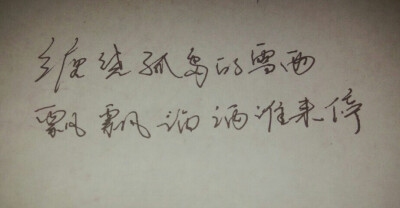 缠绕孤岛的雪雨
飘飘洒洒谁来停